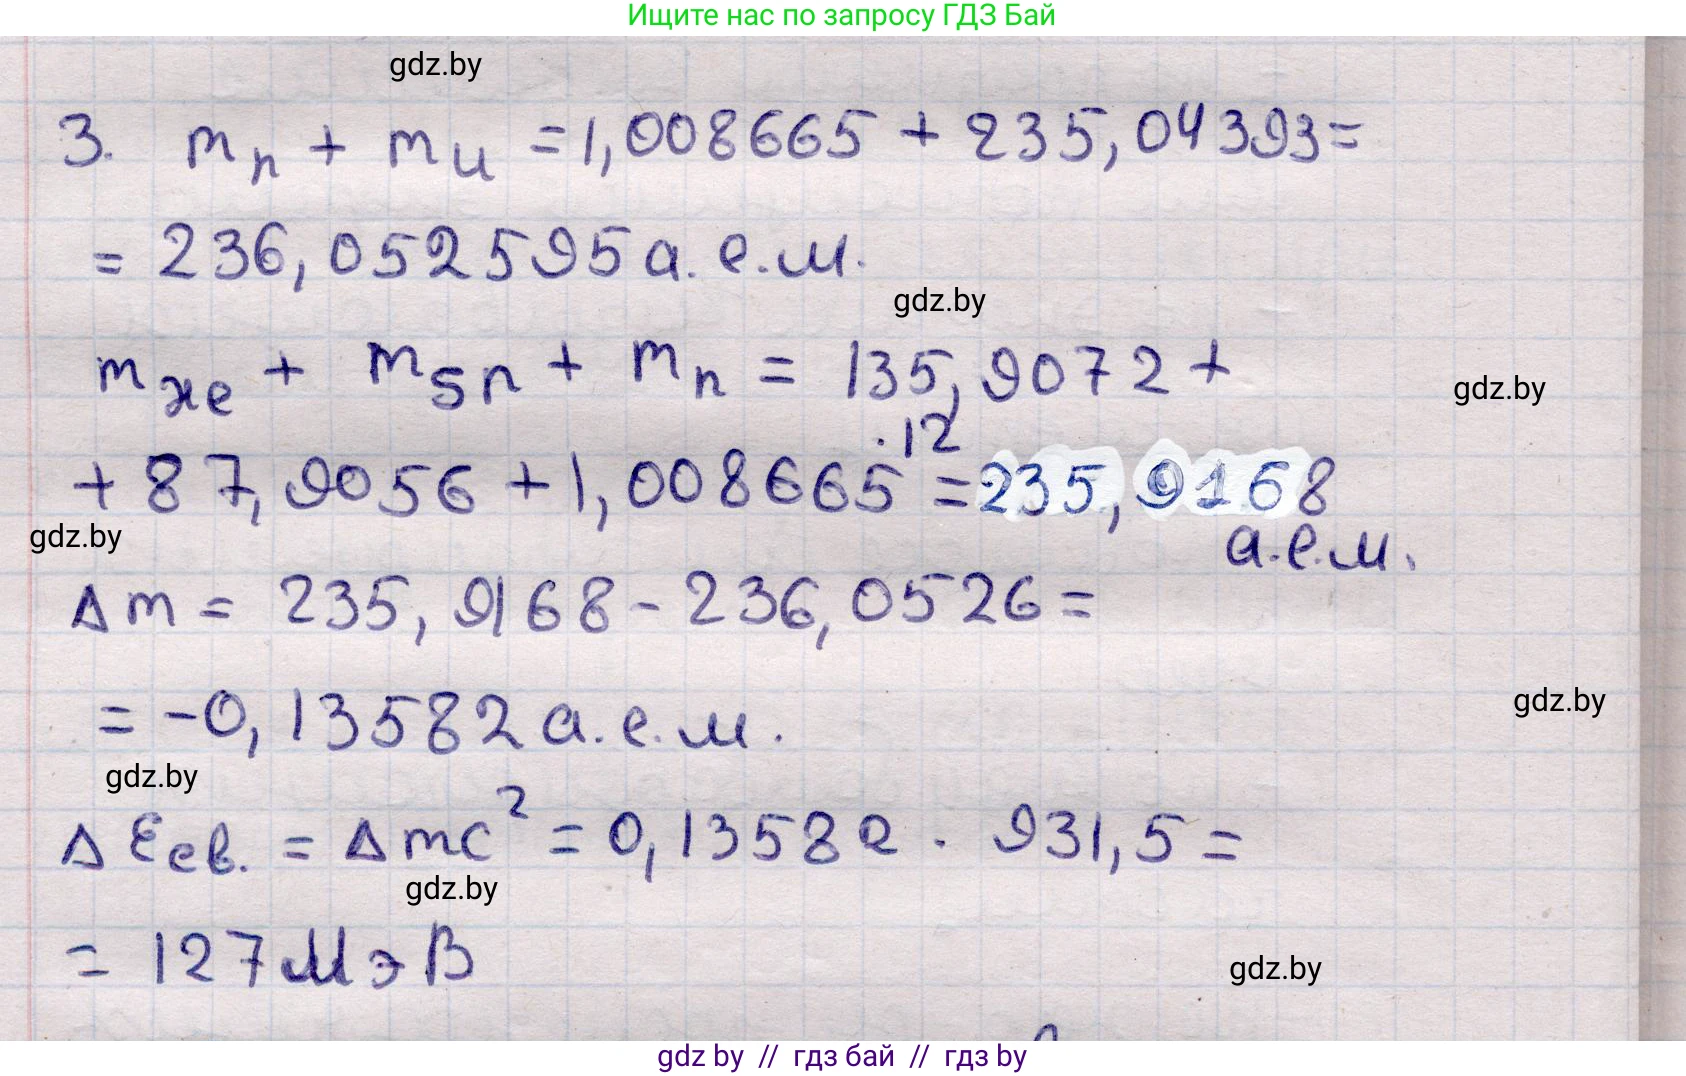 Ищите нас по запросу ГДЗ Бай
gdz.by
3. mₙ + mᵤ = 1,008665 + 235,04393 =
= 236,052595 а.е.м.
gdz.by
m_xe + m_Sn + mₙ = 135,9072 +
gdz.by
+ 87,9056 + 1,008665 · 12 = 235,9168
а.е.м.
gdz.by
Δm = 235,9168 - 236,0526 =
= -0,13582 а.е.м.
gdz.by
gdz.by
ΔEсв. = Δmc² = 0,13582 · 931,5 =
gdz.by
= 127 МэВ
gdz.by
gdz by // гдз бай // гдз by